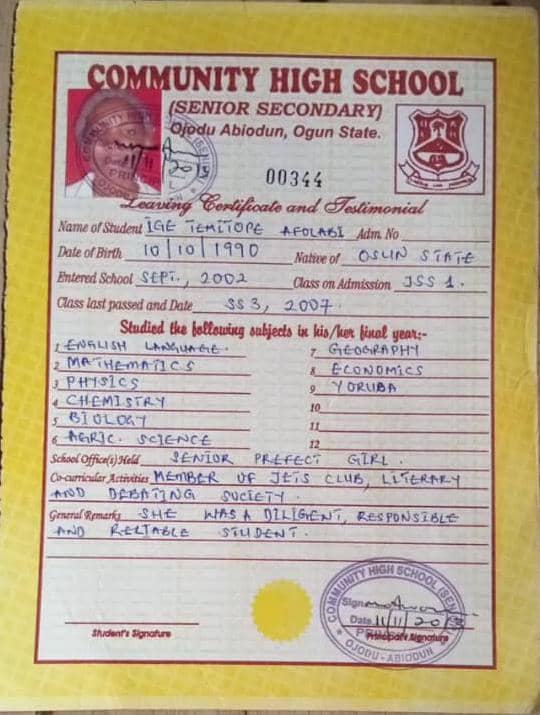 COMMUNITY HIGH SCHOOL
(SENIOR SECONDARY)
Ojodu Abiodun, Ogun State.
00344
Leaving Certificate and Testimonial
Name of Student IGE TEMITOPE AFOLABI Adm. No
Date of Birth 10/10/1990 Native of OSUN STATE
Entered School SEPT., 2002 Class on Admission JSS 1.
Class last passed and Date SS 3, 2007.
Studied the following subjects in his/her final year:-
1 ENGLISH LANGUAGE. 7 GEOGRAPHY
2 MATHEMATICS 8 ECONOMICS
3 PHYSICS 9 YORUBA
4 CHEMISTRY 10
5 BIOLOGY 11
6 AGRIC. SCIENCE 12
School Office(s) Held SENIOR PREFECT GIRL.
Co-curricular Activities MEMBER OF JETS CLUB, LITERARY
AND DEBATING SOCIETY.
General Remarks SHE WAS A DILIGENT, RESPONSIBLE
AND RELIABLE STUDENT.
COMMUNITY HIGH SCHOOL (SENIOR)
Sign
Date 11/11/20
Student's Signature Principal's Signature
OJODU-ABIODUN